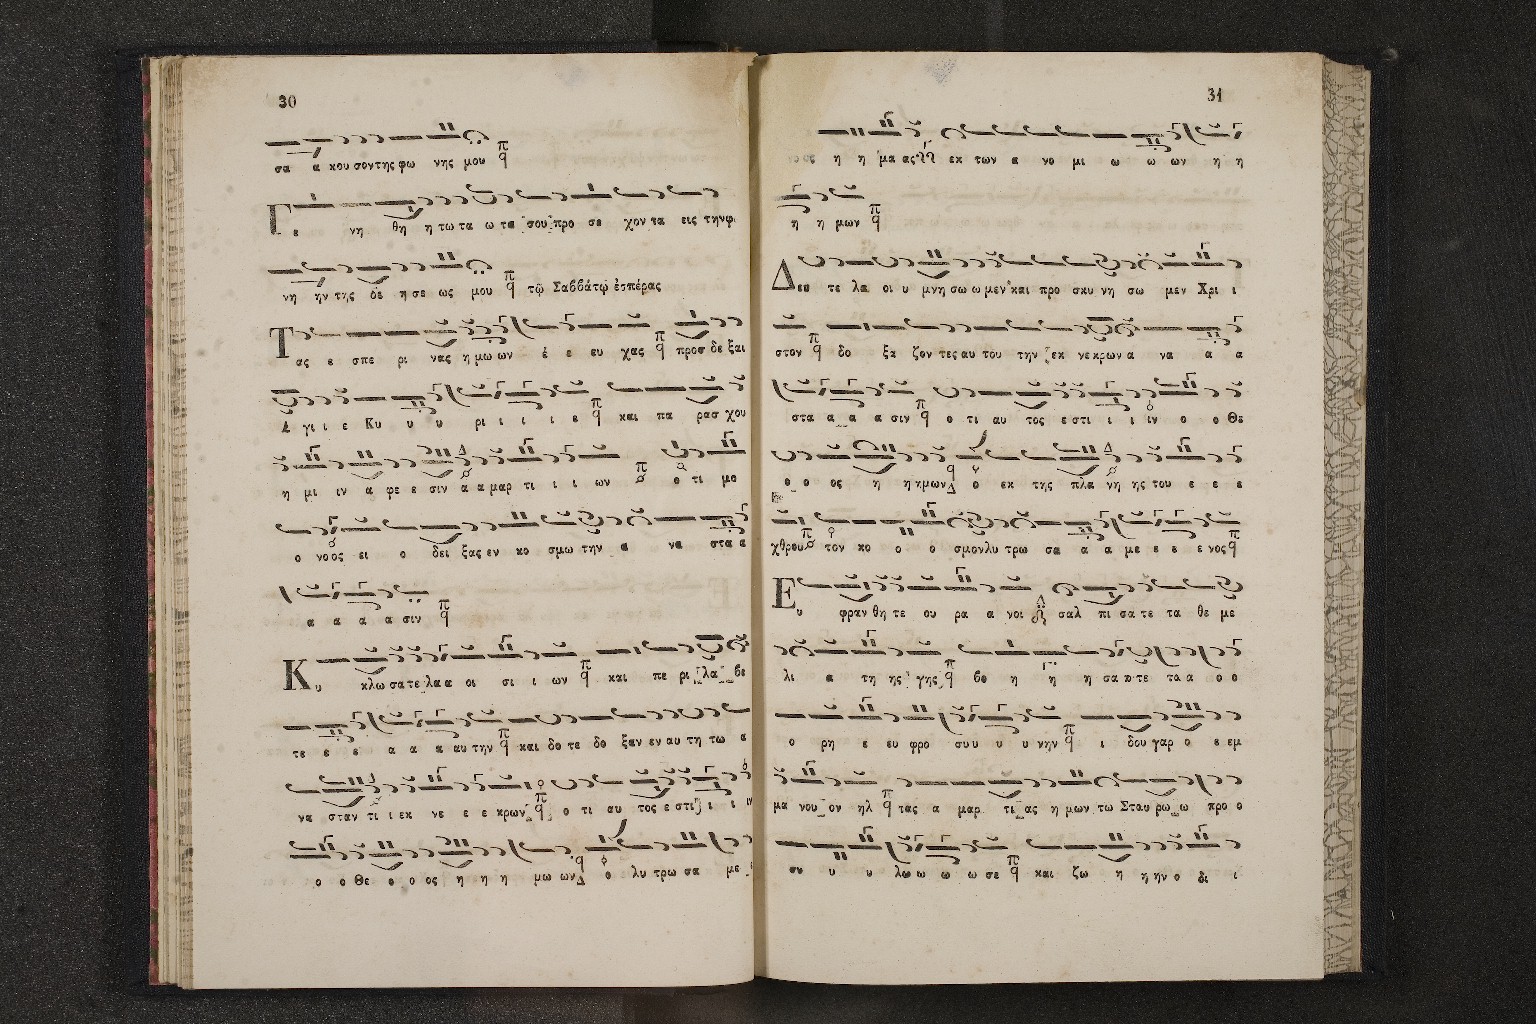 30
σα α κου σον της φω νης μου
Γε νη θη η τω τα ω τα σου προ σε χον τα εις την φω
νη ην της δε η σε ως μου τῷ Σαββάτῳ ἑσπέρας
Τας ε σπε ρι νας η μω ων ε ε ευ χας προσ δε ξαι
Α γι ι ε Κυ υ υ ρι ι ι ι ε και πα ρασ χου
η μι ιν α φε ε σιν α α μαρ τι ι ι ων ο τι μο
ο νο ος ει ο δει ξας εν κο σμω την α να στα α
α α α α σιν
Κυ κλω σα τε λα α οι σι ι ων και πε ρι λα βε
τε ε ε α α α αυ την και δο τε δο ξαν εν αυ τη τω α
να σταν τι ι εκ νε ε ε κρων ο τι αυ τος ε στι ι ι ιν
ο ο Θε ο ο ος η η η μω ων ο λυ τρω σα με
31
ος η η μα ας εκ των α νο μι ω ω ων η η
η η μων
Δευ τε λα οι υ μνη σω ω μεν και προ σκυ νη σω μεν Χρι ι
στον δο ξα ζον τες αυ του την εκ νε κρων α να α α
στα α α α σιν ο τι αυ τος ε στι ι ι ιν ο ο Θε
ο ο ος η η ημων ο εκ της πλα νη ης του ε ε ε
χθρου τον κο ο ο σμον λυ τρω σα α α με ε ε ε νος
Ευ φραν θη τε ου ρα α νοι σαλ πι σα τε τα θε με
λι α τη ης γης βο η η η σα τε τα α ο ο
ο ρη ε ευ φρο συ υ υ υ νην ι δου γαρ ο ε εμ
μα νου ον ηλ τας α μαρ τι ας η μων τω Σταυ ρω ω προ ο
συ υ υ λω ω ω ω σε και ζω η η ην ο δι ι